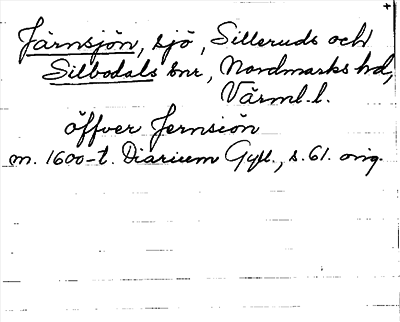 Järnsjön, sjö, Silleruds och
Silbodals snr, Nordmarks hd,
Värml.l.
öffver Jernsiön
m. 1600-t. Diarium Gyll., s. 61. orig.